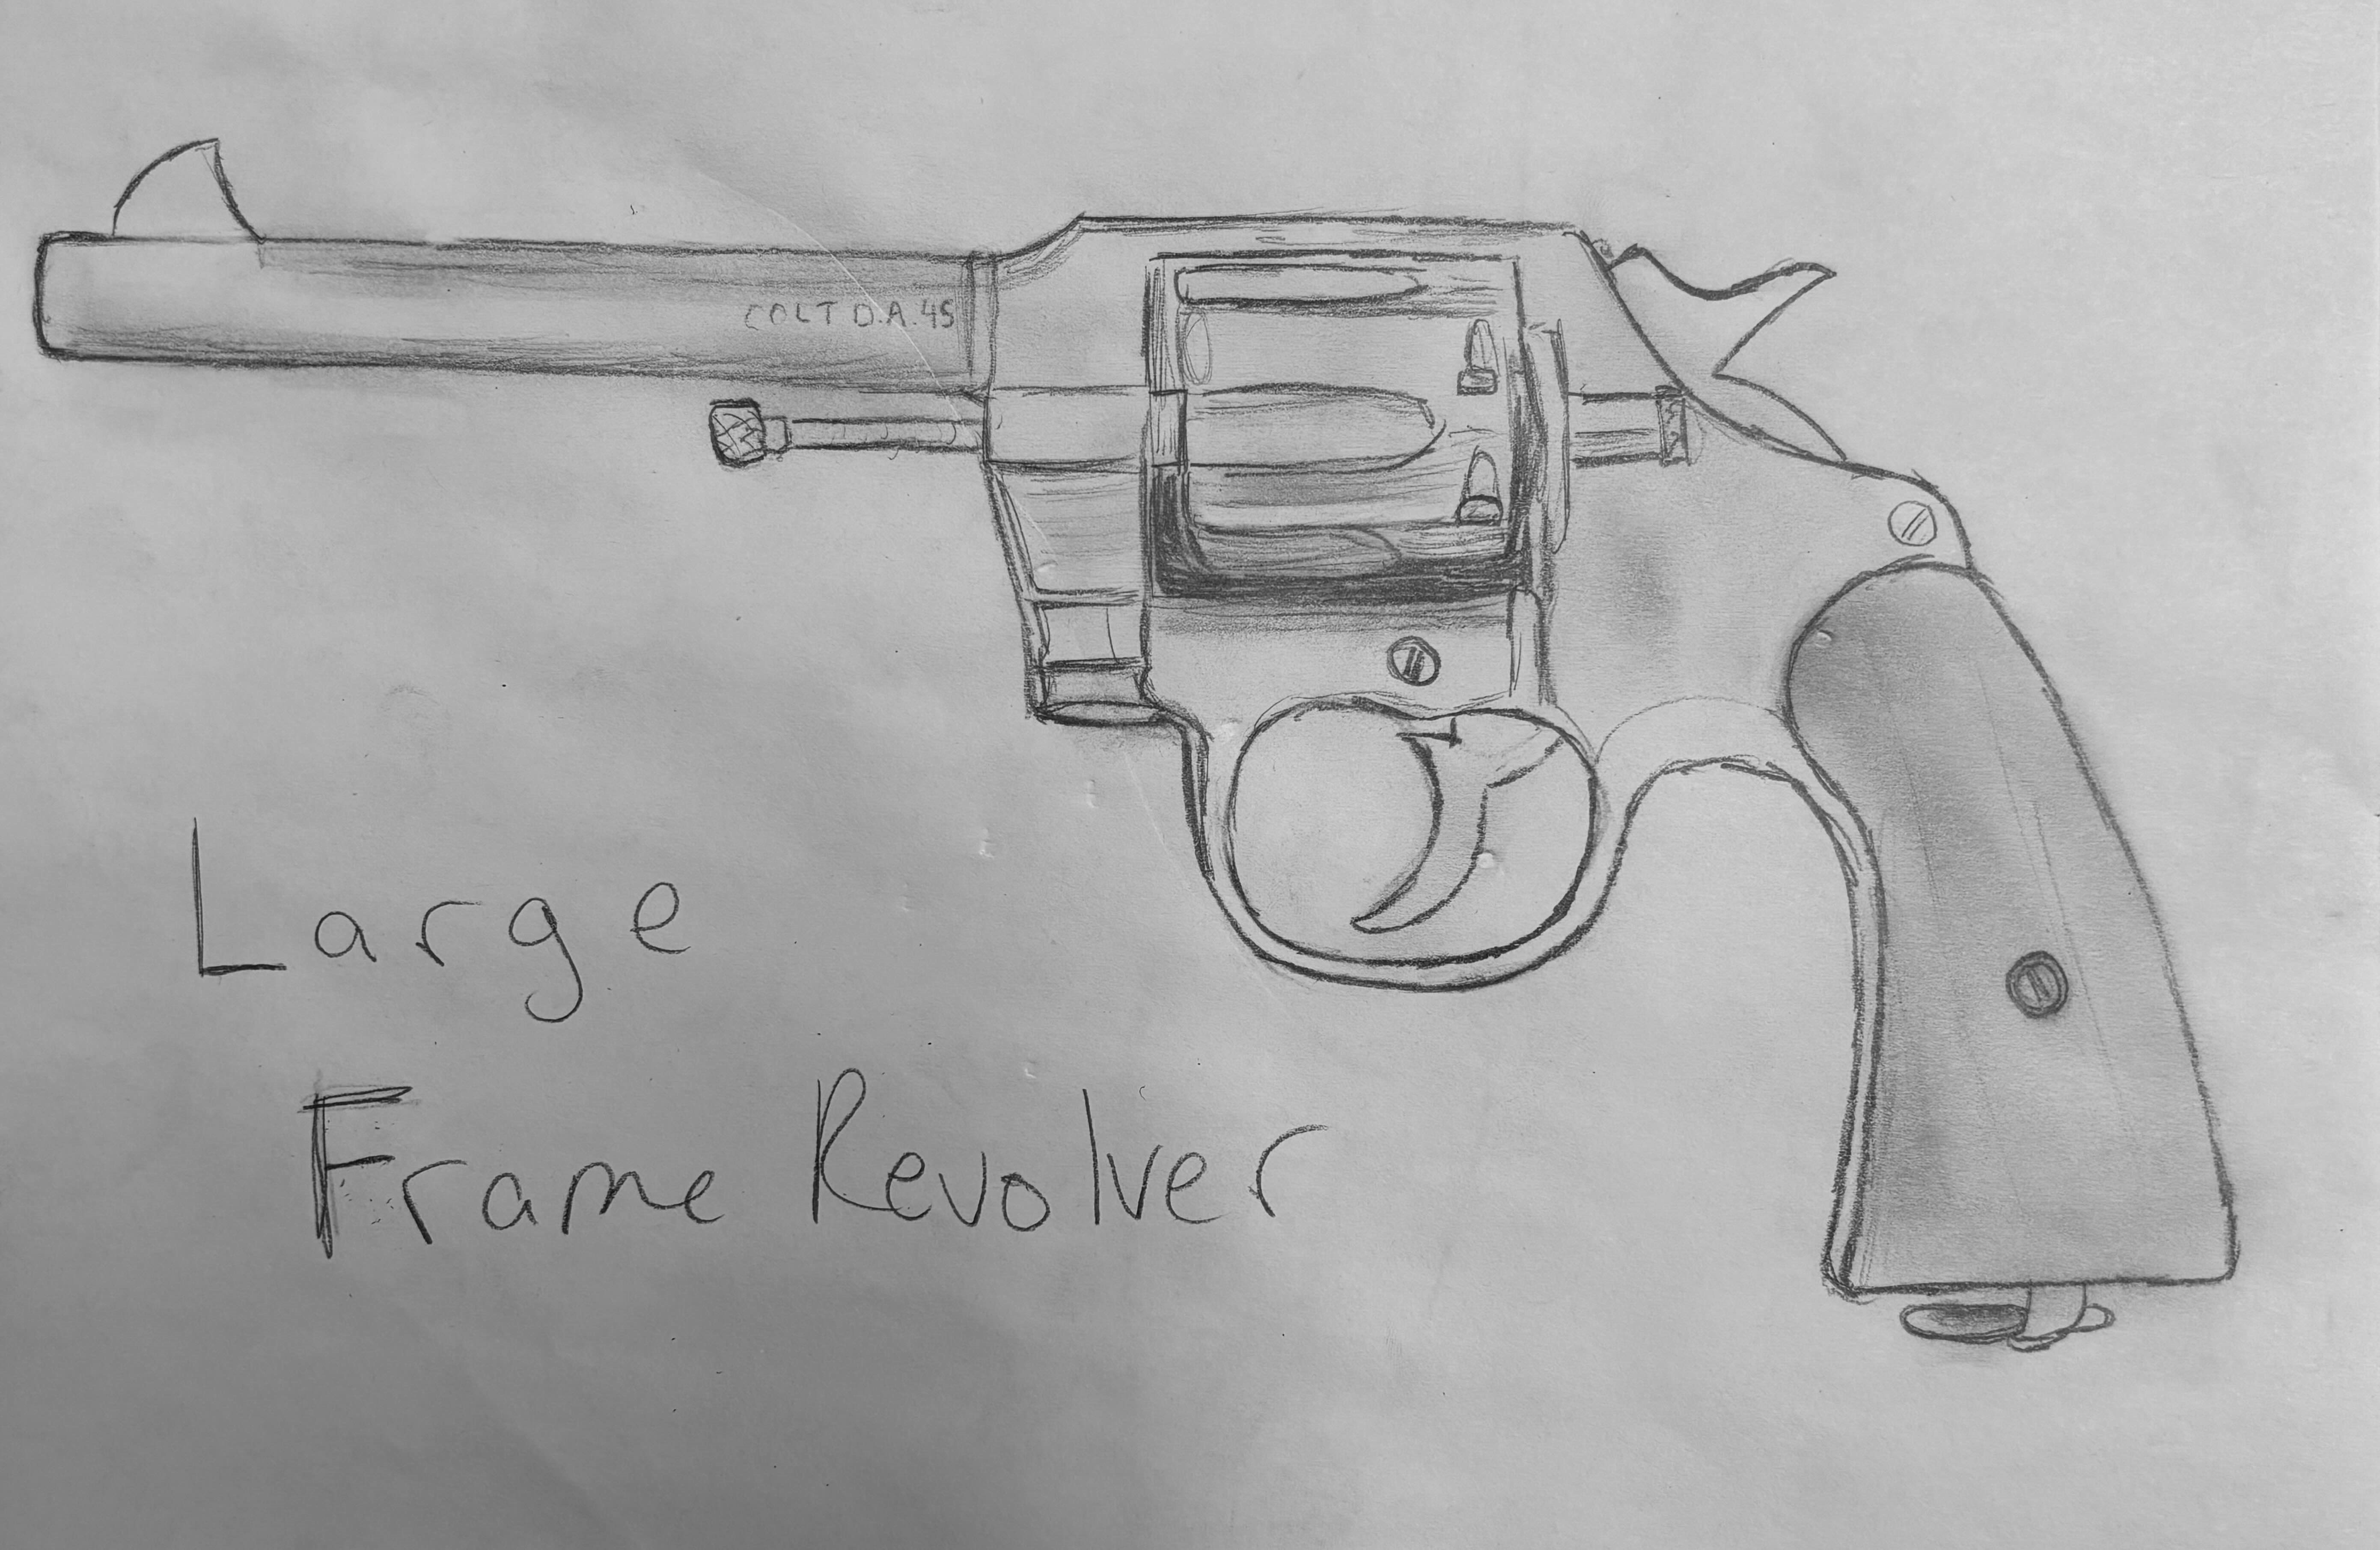 COLT D.A. 45
Large
Frame Revolver